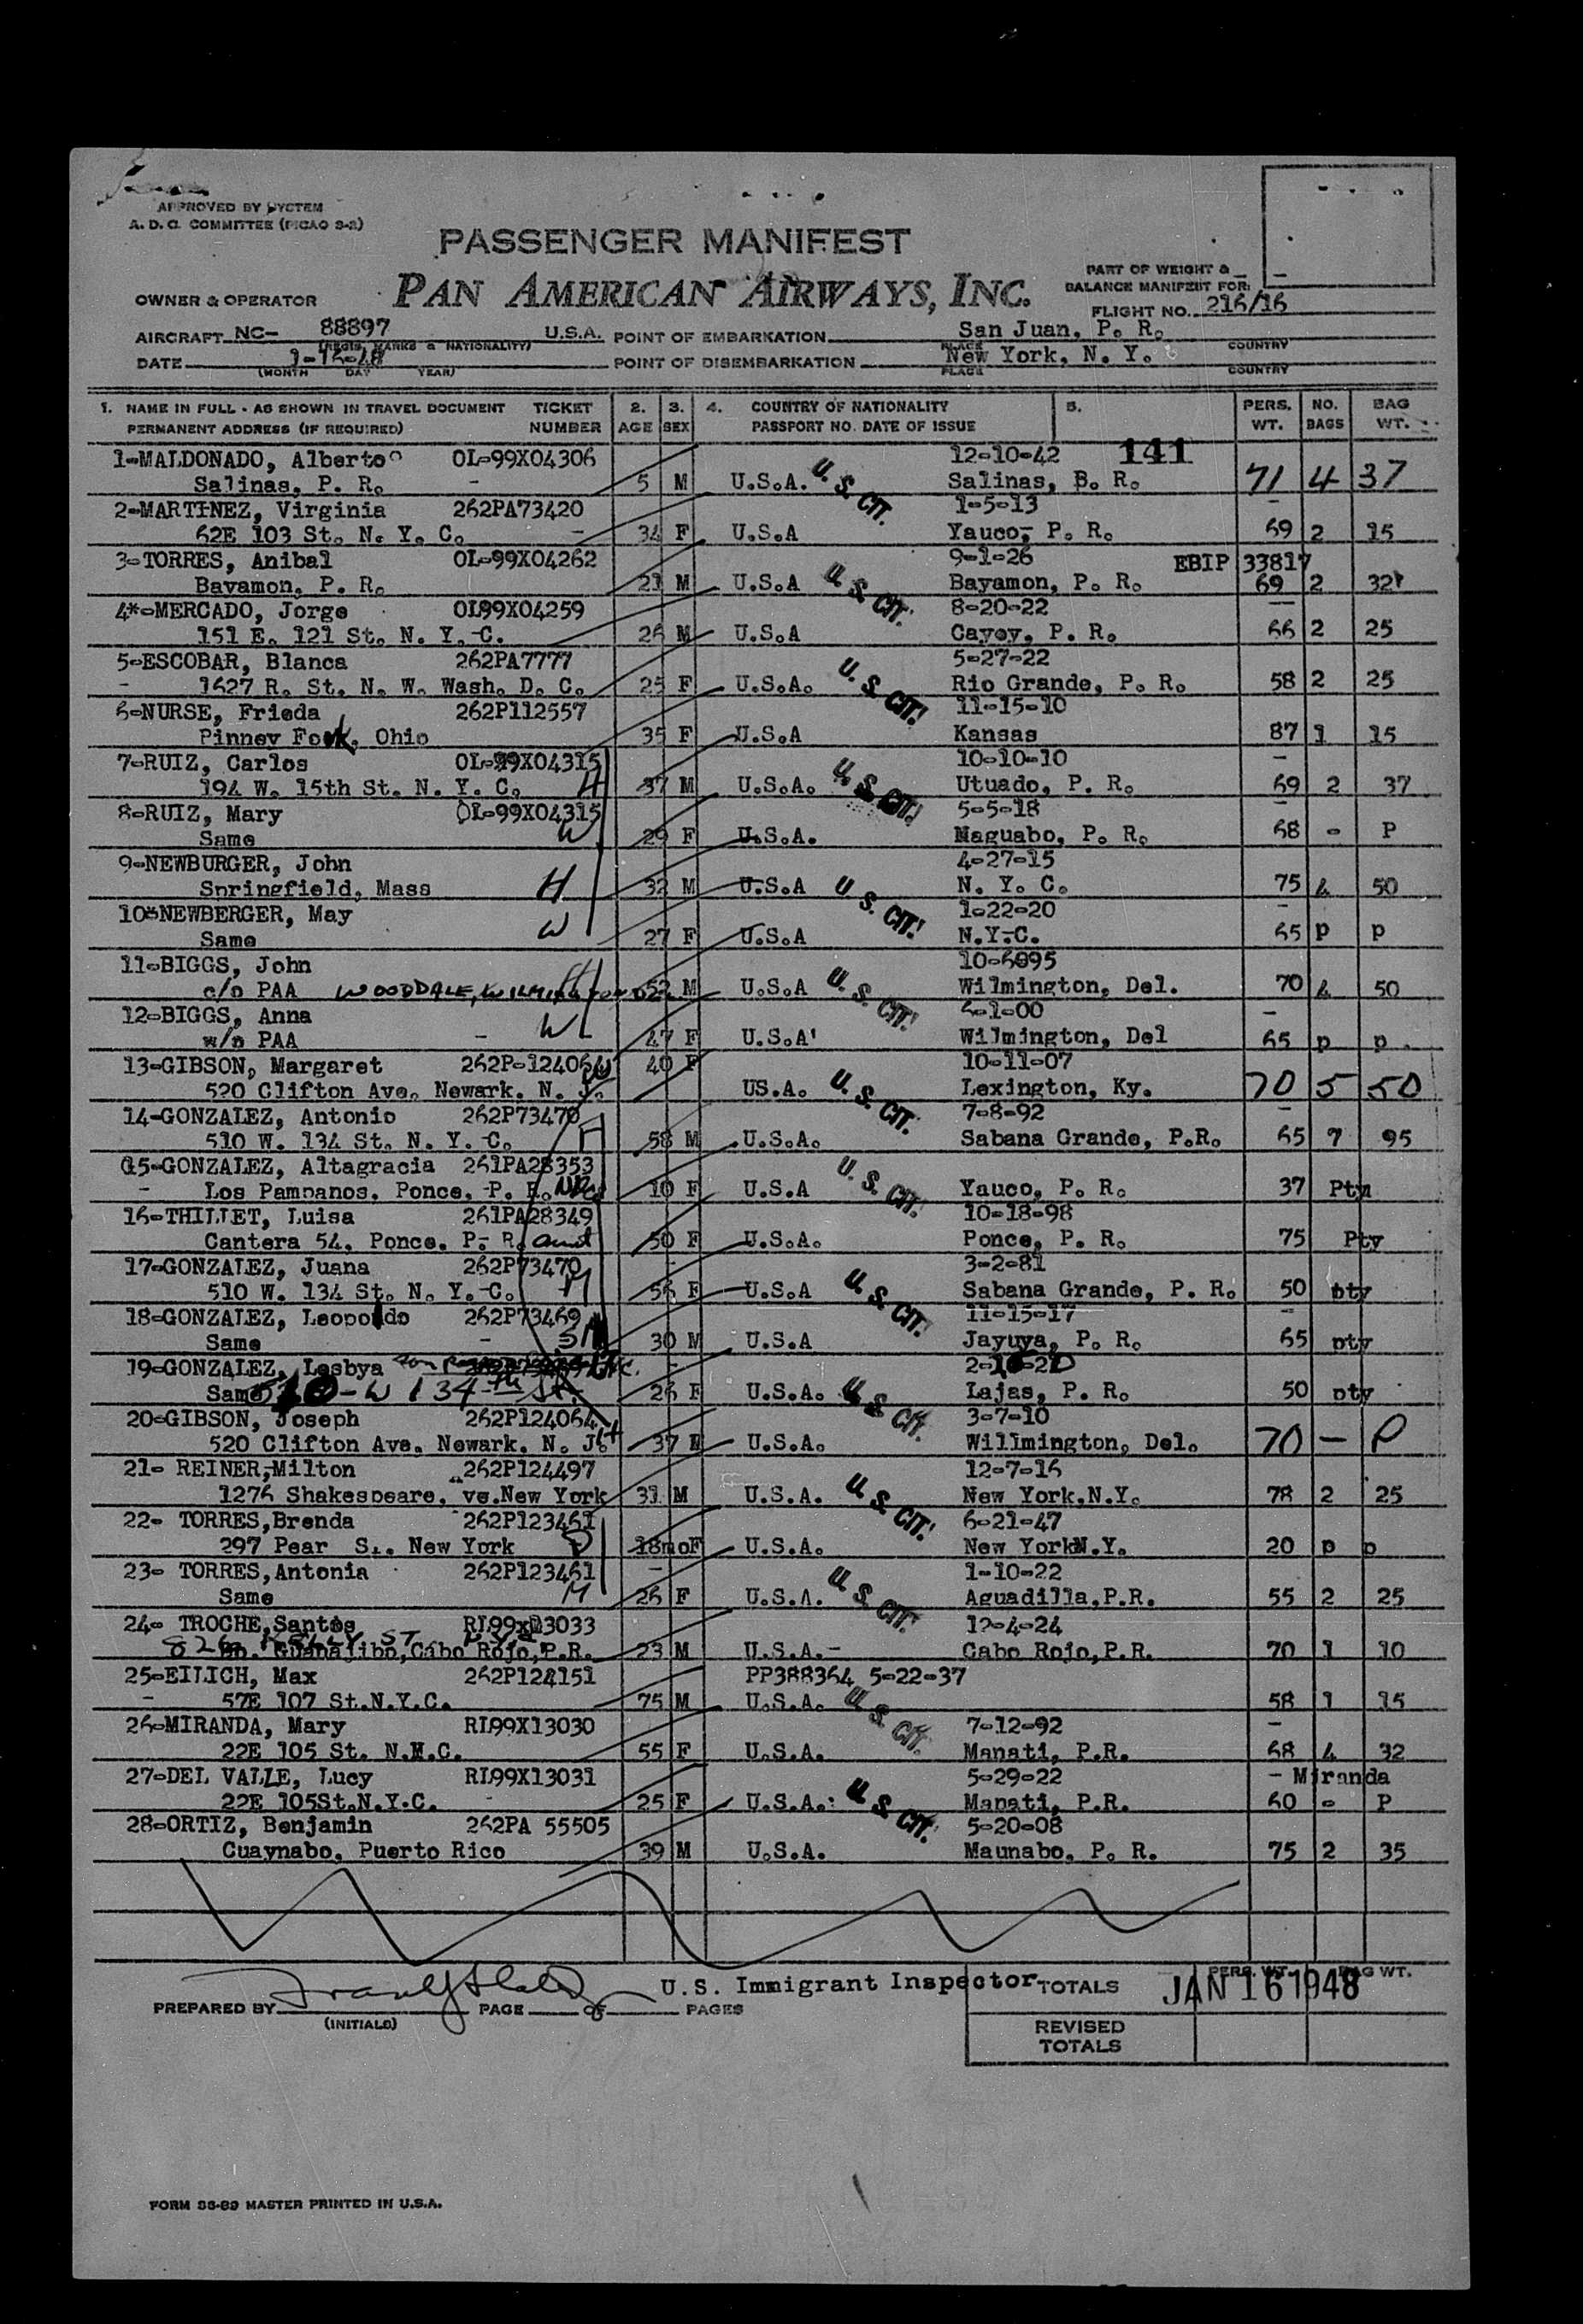 APPROVED BY SYSTEM
A. D. C. COMMITTEE (PICAO 3-2)
PASSENGER MANIFEST
PAN AMERICAN AIRWAYS, INC.
PART OF WEIGHT &
BALANCE MANIFEST FOR:
OWNER & OPERATOR
FLIGHT NO. 216/16
AIRCRAFT NC- 88897 U.S.A. POINT OF EMBARKATION San Juan, P. R.
(REGIS. MARKS & NATIONALITY) PLACE COUNTRY
DATE 1-15-48 POINT OF DISEMBARKATION New York, N. Y.
(MONTH DAY YEAR) PLACE COUNTRY
1. NAME IN FULL - AS SHOWN IN TRAVEL DOCUMENT TICKET 2. 3. 4. COUNTRY OF NATIONALITY 5. PERS. NO. BAG
PERMANENT ADDRESS (IF REQUIRED) NUMBER AGE SEX PASSPORT NO. DATE OF ISSUE WT. BAGS WT.
1-MALDONADO, Alberto OL-99X04306 12-10-42 141
Salinas, P. R. - 5 M U.S.A. U. S. CIT. Salinas, B. R. 71 4 37
2-MARTINEZ, Virginia 262PA73420 1-5-13
62E 103 St. N. Y. C. 34 F U.S.A Yauco, P. R. 69 2 15
3-TORRES, Anibal OL-99X04262 9-1-26 EBIP 33817
Bayamon, P. R. 21 M U.S.A U. S. CIT. Bayamon, P. R. 69 2 32
4*-MERCADO, Jorge OL99X04259 8-20-22
151 E. 121 St. N. Y. C. 26 M U.S.A Cayey, P. R. 66 2 25
5-ESCOBAR, Blanca 262PA7777 5-27-22
1627 R. St. N. W. Wash. D. C. 25 F U.S.A. U. S. CIT! Rio Grande, P. R. 58 2 25
6-NURSE, Frieda 262P112557 11-15-10
Pinney Fork, Ohio 35 F U.S.A Kansas 87 1 15
7-RUIZ, Carlos OL-99X04315 10-10-10
194 W. 15th St. N. Y. C. H 37 M U.S.A. U. S. CIT! Utuado, P. R. 69 2 37
8-RUIZ, Mary OL-99X04315 5-5-18
Same W 29 F U.S.A. Naguabo, P. R. 68 - P
9-NEWBURGER, John 4-27-15
Springfield, Mass H 32 M U.S.A U. S. CIT! N. Y. C. 75 4 50
10-NEWBERGER, May 1-22-20
Same W 27 F U.S.A N.Y.C. 65 p p
11-BIGGS, John
c/o PAA WOODDALE, WILMINGTON 52 M U.S.A U. S. CIT! Wilmington, Del. 70 4 50
12-BIGGS, Anna
w/o PAA - W 47 F U.S.A' Wilmington, Del 65 p p
13-GIBSON, Margaret 262P-124064 W 40 F 10-11-07
520 Clifton Ave. Newark. N. J. US.A. U. S. CIT. Lexington, Ky. 70 5 50
14-GONZALEZ, Antonio 262P73470 7-8-92
510 W. 134 St. N. Y. C. F 58 M U.S.A. Sabana Grande, P.R. 65 7 95
15-GONZALEZ, Altagracia 261PA28353
Los Pampanos, Ponce, P. R. 10 F U.S.A U. S. CIT! Yauco, P. R. 37 Pty
16-THILLET, Luisa 261PA28349 10-18-98
Cantera 54, Ponce, P. R. aunt 50 F U.S.A. Ponce, P. R. 75 Pty
17-GONZALEZ, Juana 262P73470 3-2-81
510 W. 134 St. N. Y. C. M 56 F U.S.A U. S. CIT! Sabana Grande, P. R. 50 pty
18-GONZALEZ, Leopoldo 262P73469 11-15-17
Same - 30 M U.S.A Jayuya, P. R. 65 pty
19-GONZALEZ, Lesbya
Same 510-W 134th St. 26 F U.S.A. U. S. CIT. Lajas, P. R. 50 pty
20-GIBSON, Joseph 262P124064 3-7-10
520 Clifton Ave. Newark. N. J. H 37 M U.S.A. Willmington, Del. 70 - P
21- REINER,Milton 262P124497 12-7-16
1276 Shakespeare, ve.New York 31 M U.S.A. U. S. CIT! New York,N.Y. 78 2 25
22- TORRES,Brenda 262P123461 6-21-47
297 Pear St. New York D 18moF U.S.A. New YorkN.Y. 20 p p
23- TORRES,Antonia 262P123461 1-10-22
Same M 26 F U.S.A. U. S. CIT. Aguadilla,P.R. 55 2 25
24- TROCHE,Santos RL99xD3033 12-4-24
Bo. Guanajibo,Cabo Rojo,P.R. 23 M U.S.A.- Cabo Rojo,P.R. 70 1 10
25-EILICH, Max 262P124151 PP388364 5-22-37
57E 107 St.N.Y.C. 75 M U.S.A. U. S. CIT. 58 1 15
26-MIRANDA, Mary RL99X13030 7-12-92
22E 105 St. N.M.C. 55 F U.S.A. Manati, P.R. 68 4 32
27-DEL VALLE, Lucy RL99X13031 5-29-22 - Miranda
22E 105St.N.Y.C. 25 F U.S.A. U. S. CIT! Manati, P.R. 60 - P
28-ORTIZ, Benjamin 262PA 55505 5-20-08
Guaynabo, Puerto Rico 39 M U.S.A. Maunabo, P. R. 75 2 35
U.S. Immigrant Inspector TOTALS PERS. WT. BAG WT. JAN 16 1948
PREPARED BY PAGE OF PAGES
(INITIALS)
REVISED
TOTALS
FORM 36-89 MASTER PRINTED IN U.S.A.